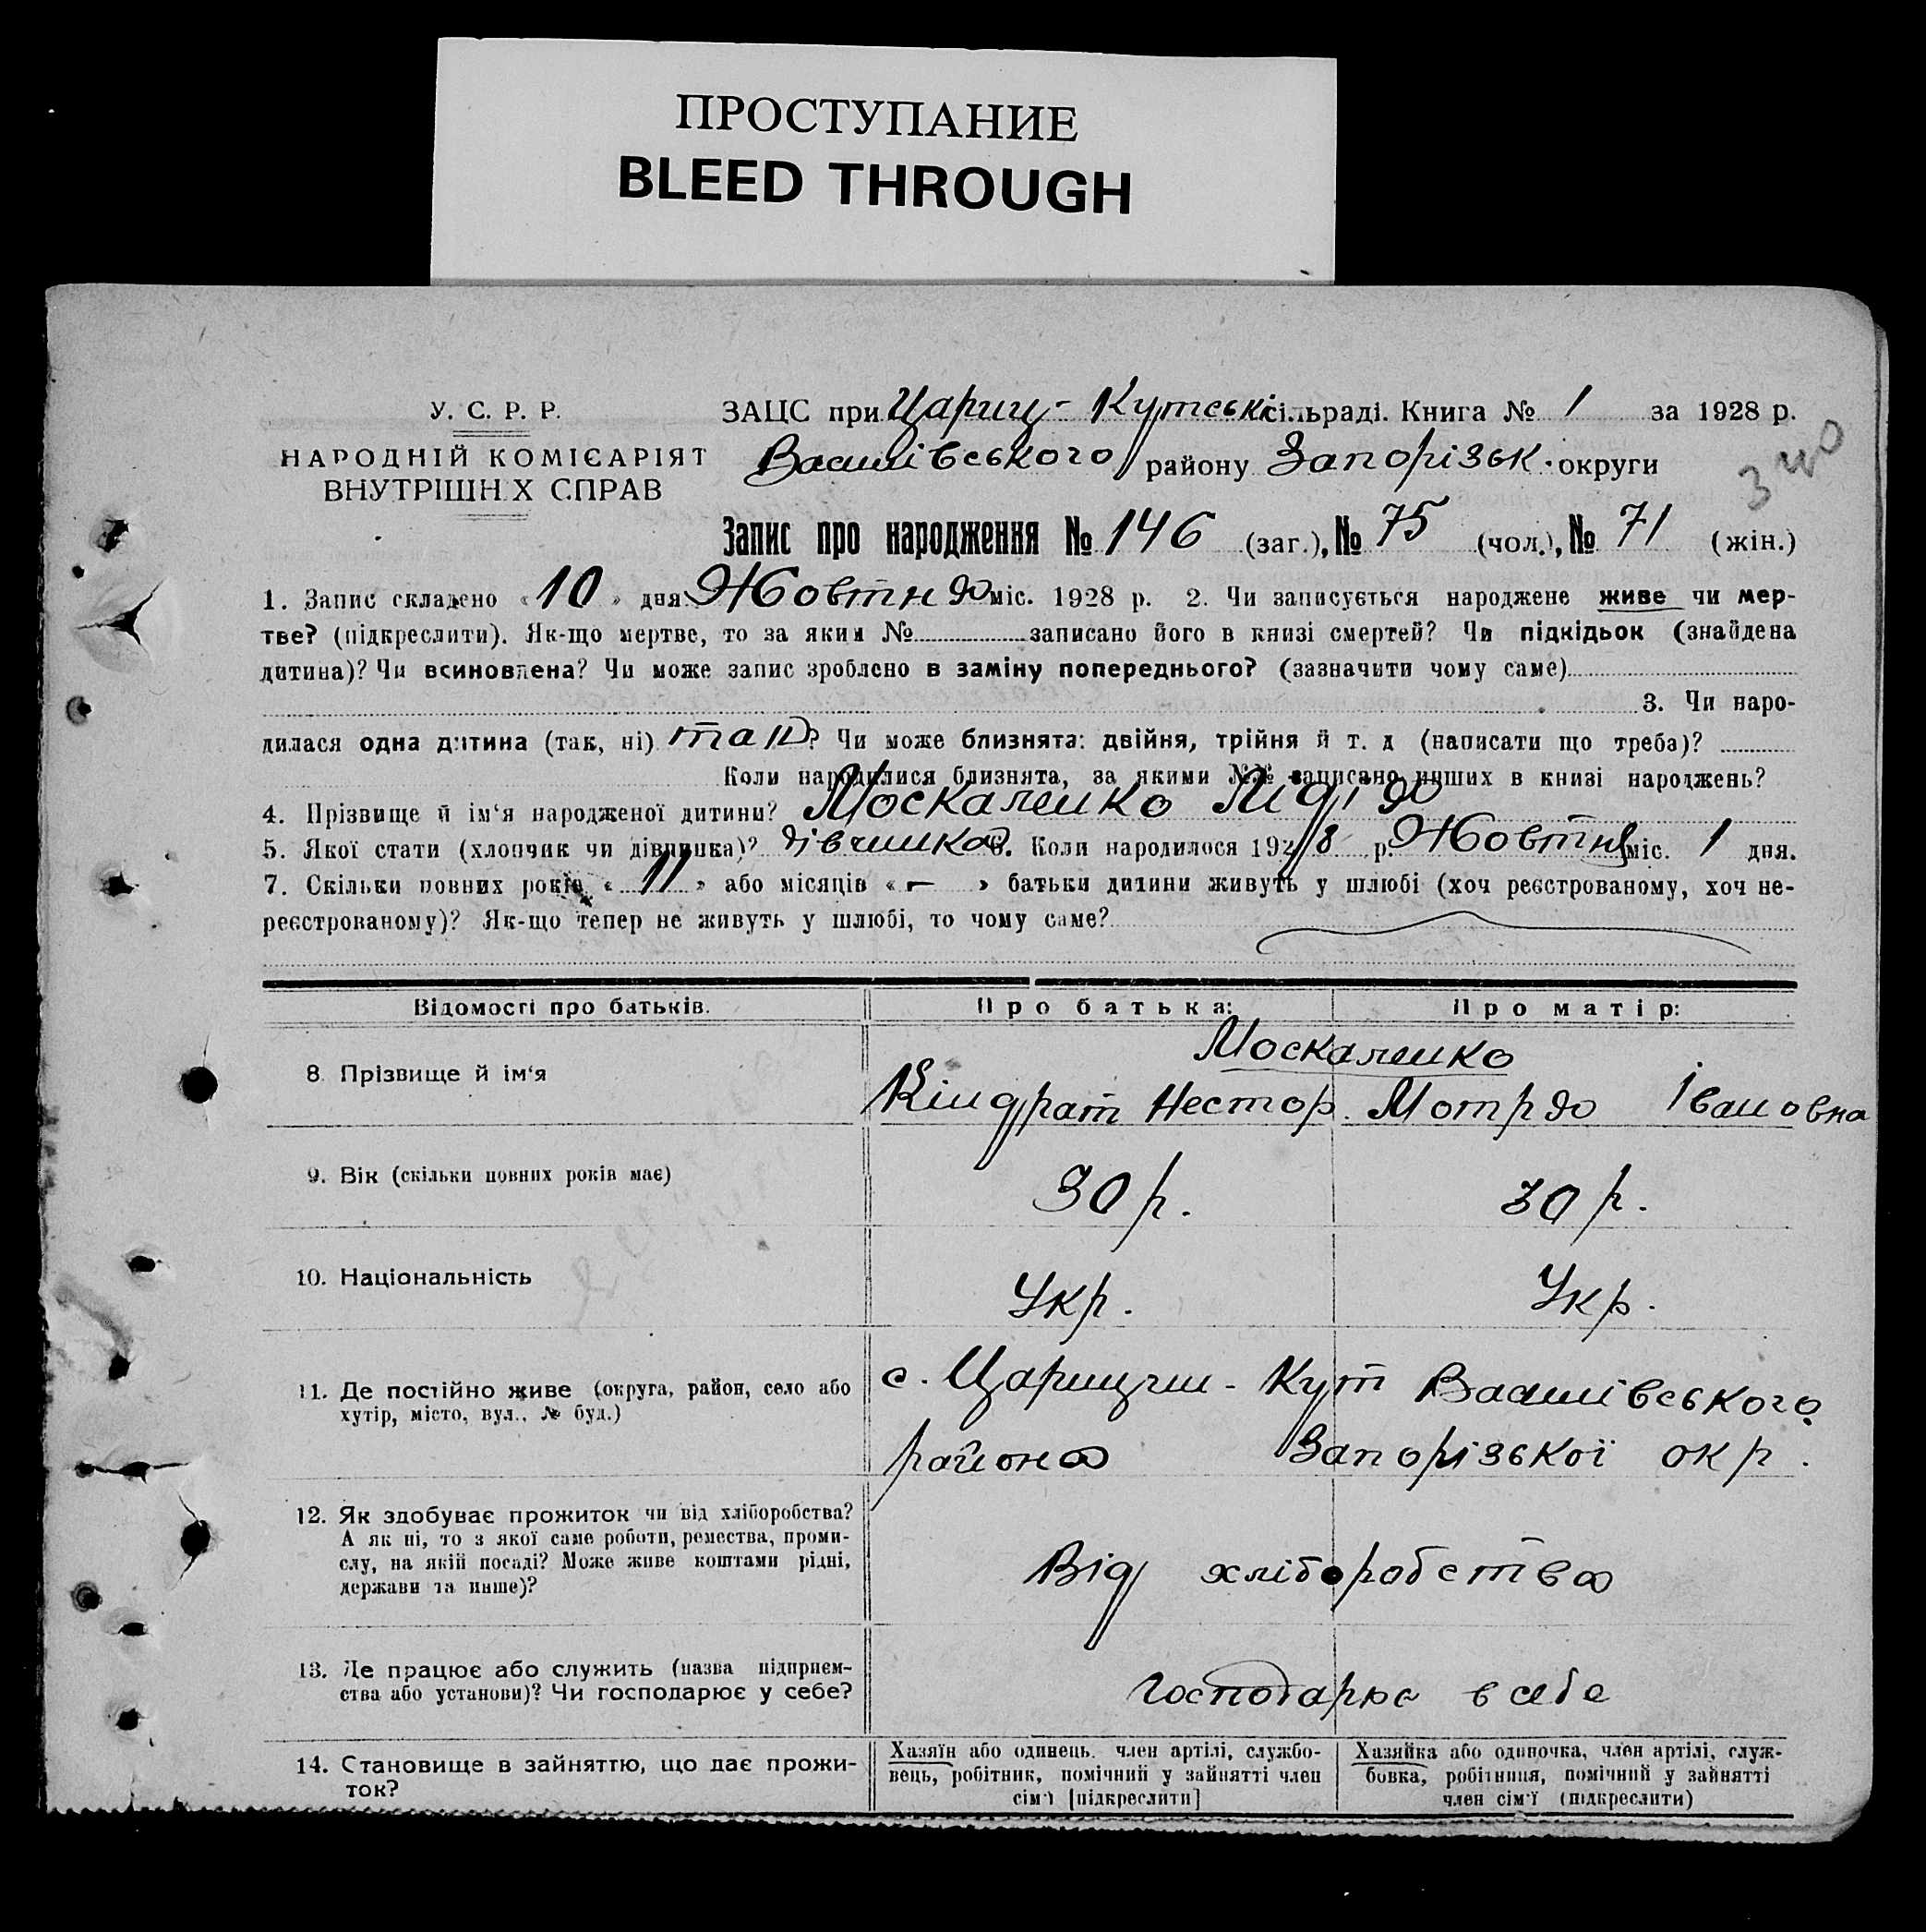 ПРОСТУПАНИЕ
BLEED THROUGH
У. С. Р. Р.
НАРОДНІЙ КОМІСАРІЯТ
ВНУТРІШНІХ СПРАВ
ЗАЦС при Цариц-Кутській сільраді. Книга № 1 за 1928 р.
Василівського району Запорізьк. округи
340
Запис про народження № 146 (заг.), № 75 (чол.), № 71 (жін.)
1. Запис складено „10“ дня Жовтня міс. 1928 р. 2. Чи записується народжене живе чи мер-
тве? (підкреслити). Як-що мертве, то за яким № записано його в книзі смертей? Чи підкідьок (знайдена
дитина)? Чи всиновлена? Чи може запис зроблено в заміну попереднього? (зазначити чому саме)
3. Чи наро-
дилася одна дитина (так, ні) так? Чи може близнята: двійня, трійня й т. д (написати що треба)?
Коли народилися близнята, за якими №№ записано инших в книзі народжень?
4. Прізвище й ім‘я народженої дитини? Москаленко Лідія
5. Якої стати (хлопчик чи дівчинка)? дівчинка 6. Коли народилося 1928 р. Жовтня міс. 1 дня.
7. Скільки повних років „11“ або місяців „—“ батьки дитини живуть у шлюбі (хоч реєстрованому, хоч не-
реєстрованому)? Як-що тепер не живуть у шлюбі, то чому саме?
Відомості про батьків. Про батька: Про матір:
Москаленко
8. Прізвище й ім‘я Кіндрат Нестор. Мотря Івановна
9. Вік (скільки повних років має) 30 р. 30 р.
10. Національність Укр. Укр.
11. Де постійно живе (округа, район, село або
хутір, місто, вул., № буд.)
с. Царицин-Кут Василівського
района Запорізької окр.
12. Як здобуває прожиток чи від хліборобства?
А як ні, то з якої саме роботи, ремества, проми-
слу, на якій посаді? Може живе коштами рідні,
держави та инше)?
Від хліборобства
13. Де працює або служить (назва підприєм-
ства або установи)? Чи господарює у себе?
господарює в себе
14. Становище в зайняттю, що дає прожи-
ток?
Хазяїн або одинець, член артілі, службо-
вець, робітник, помічний у зайнятті член
сім‘ї [підкреслити]
Хазяйка або одиночка, член артілі, служ-
бовка, робітниця, помічний у зайнятті
член сім‘ї (підкреслити)